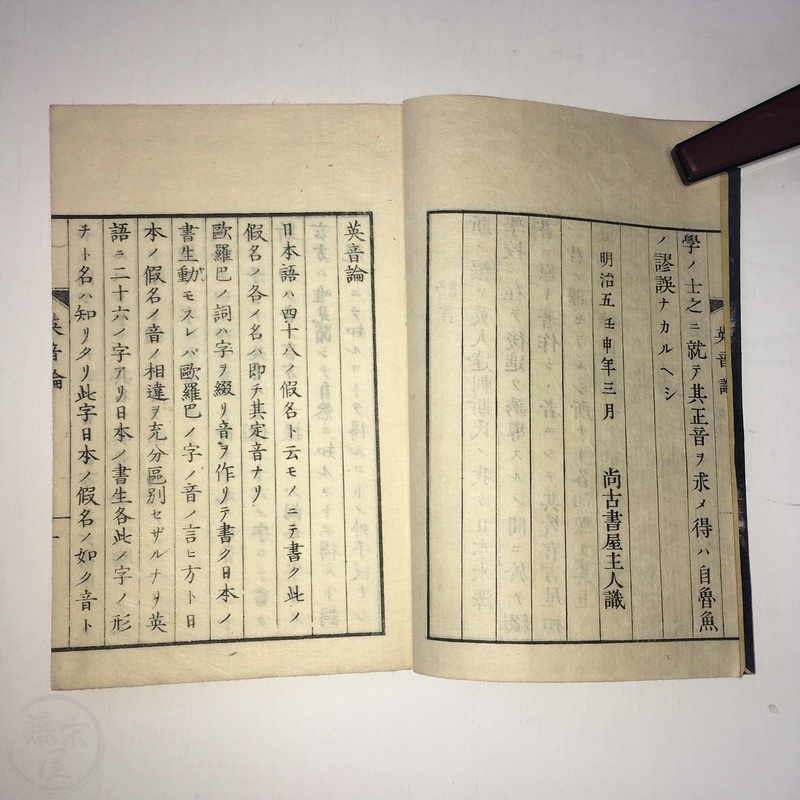 學ノ士之ニ就テ其正音ヲ求メ得ハ自魯魚
ノ謬誤ナカルヘシ
明治五壬申年三月
尚古書屋主人識
英音論
英音論
日本語ハ四十八ノ假名ト云モノニテ書ク此ノ
假名ノ各ノ名ハ即チ其定音ナリ
歐羅巴ノ詞ハ字ヲ綴リ音ヲ作リテ書ク日本ノ
書生動モスレバ歐羅巴ノ字ノ音ノ言ヒ方ト日
本ノ假名ノ音ノ相違ヲ充分區別セザルナリ英
語ニ二十六ノ字アリ日本ノ書生各此ノ字ノ形
チト名ハ知リタリ此字日本ノ假名ノ如ク音ト
英音論
一
幕末屋